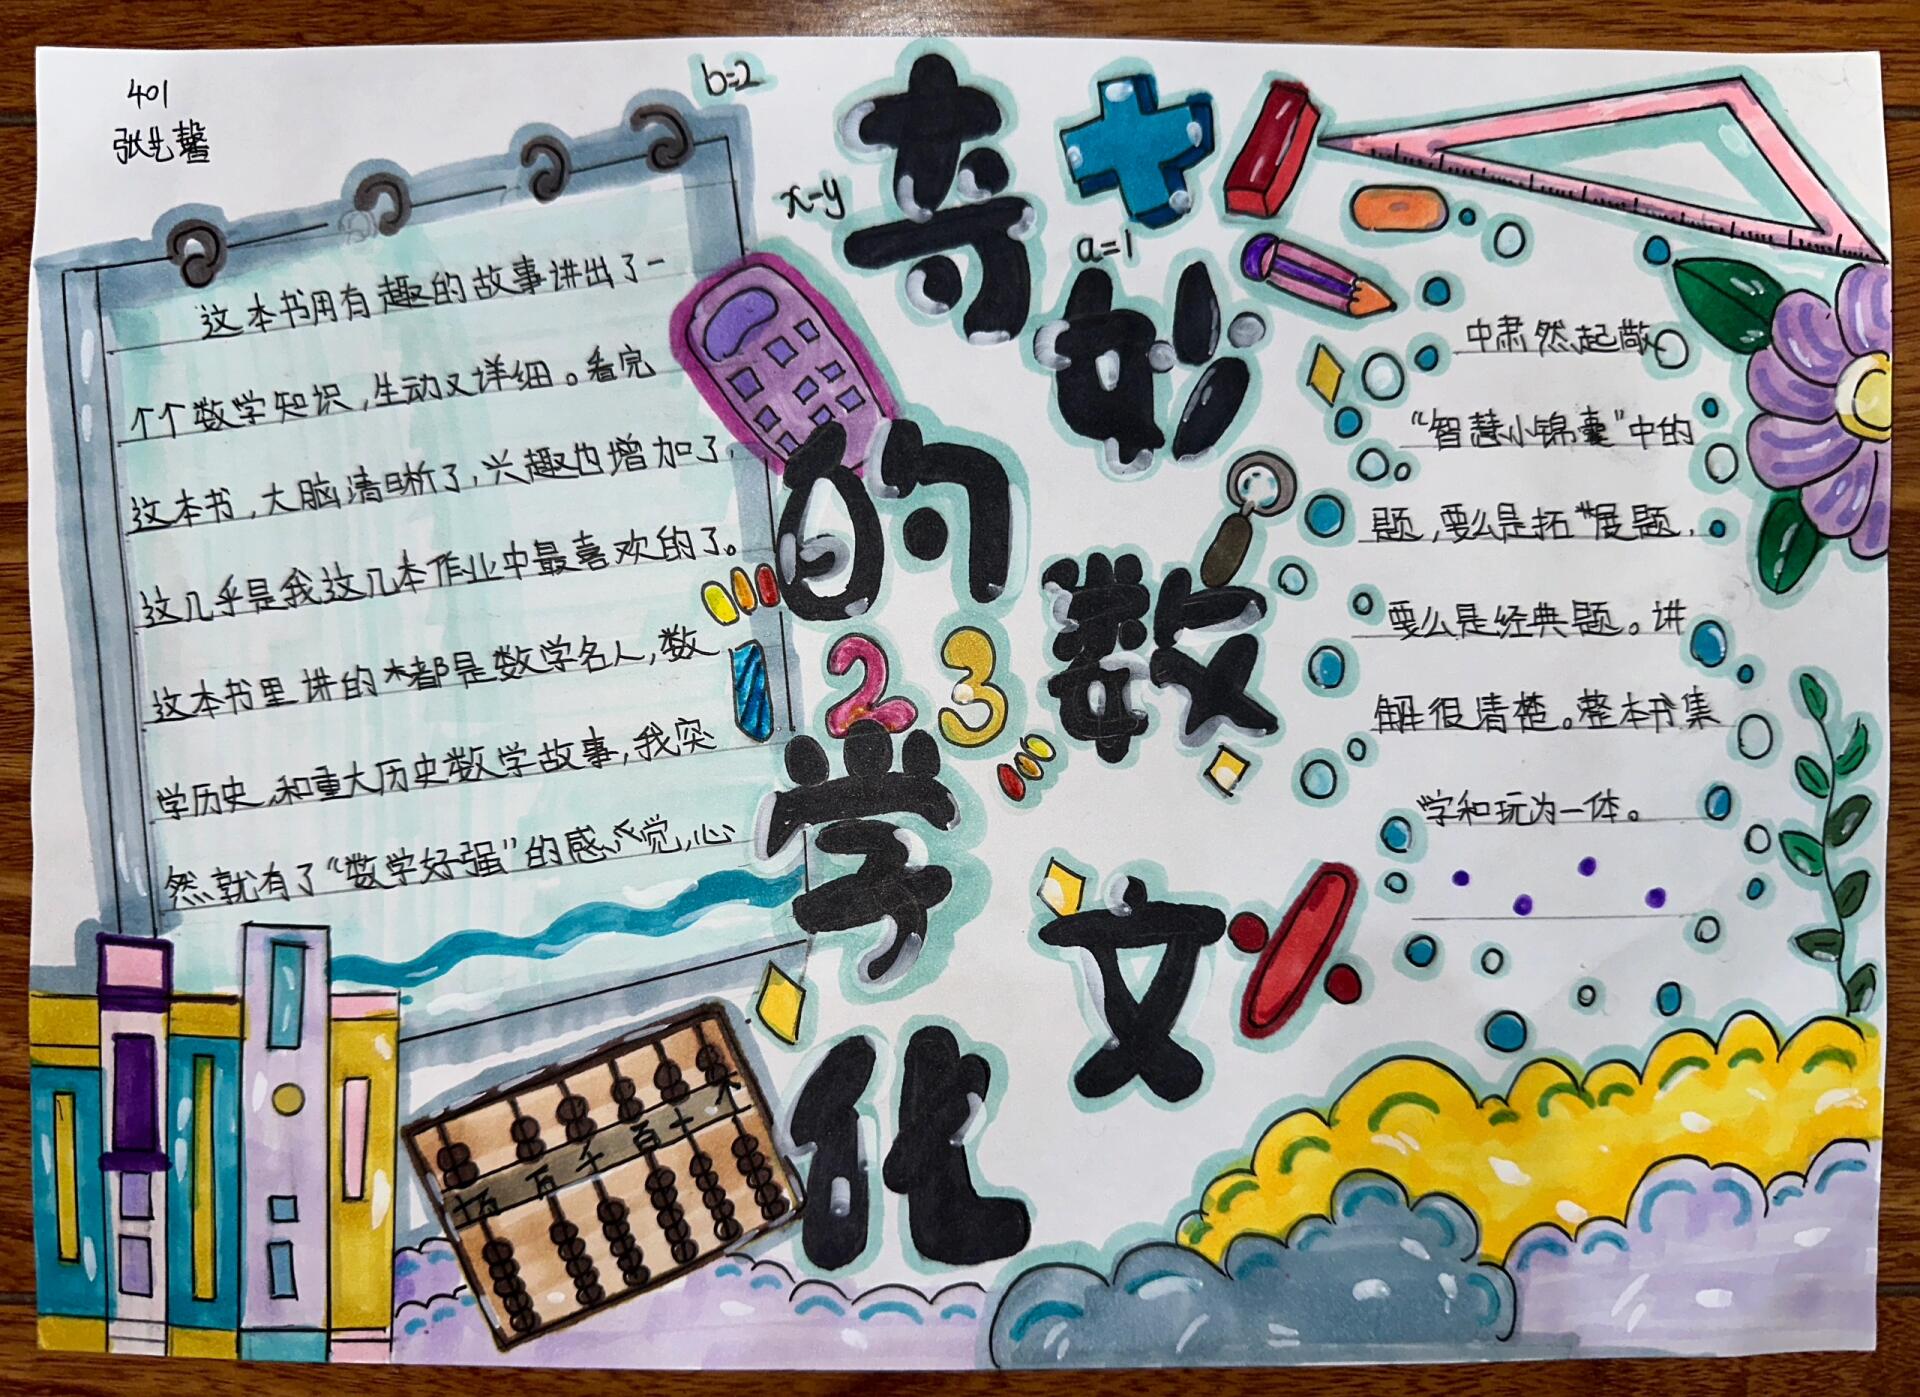 401
b=2
x=y
a=1
奇妙的数学文化
2 3
这本书用有趣的故事讲出了一
个个数学知识,生动又详细。看完
这本书,大脑清晰了,兴趣也增加了,
这几乎是我这几本作业中最喜欢的了。
这本书里讲的都是数学名人,数
学历史,和重大历史数学故事,我突
然就有了“数学好强”的感觉,心
中肃然起敬
“智慧小锦囊”中的
题,要么是拓展题,
要么是经典题。讲
解很清楚。整本书集
学和玩为一体。
十万 万 千 百 十 个